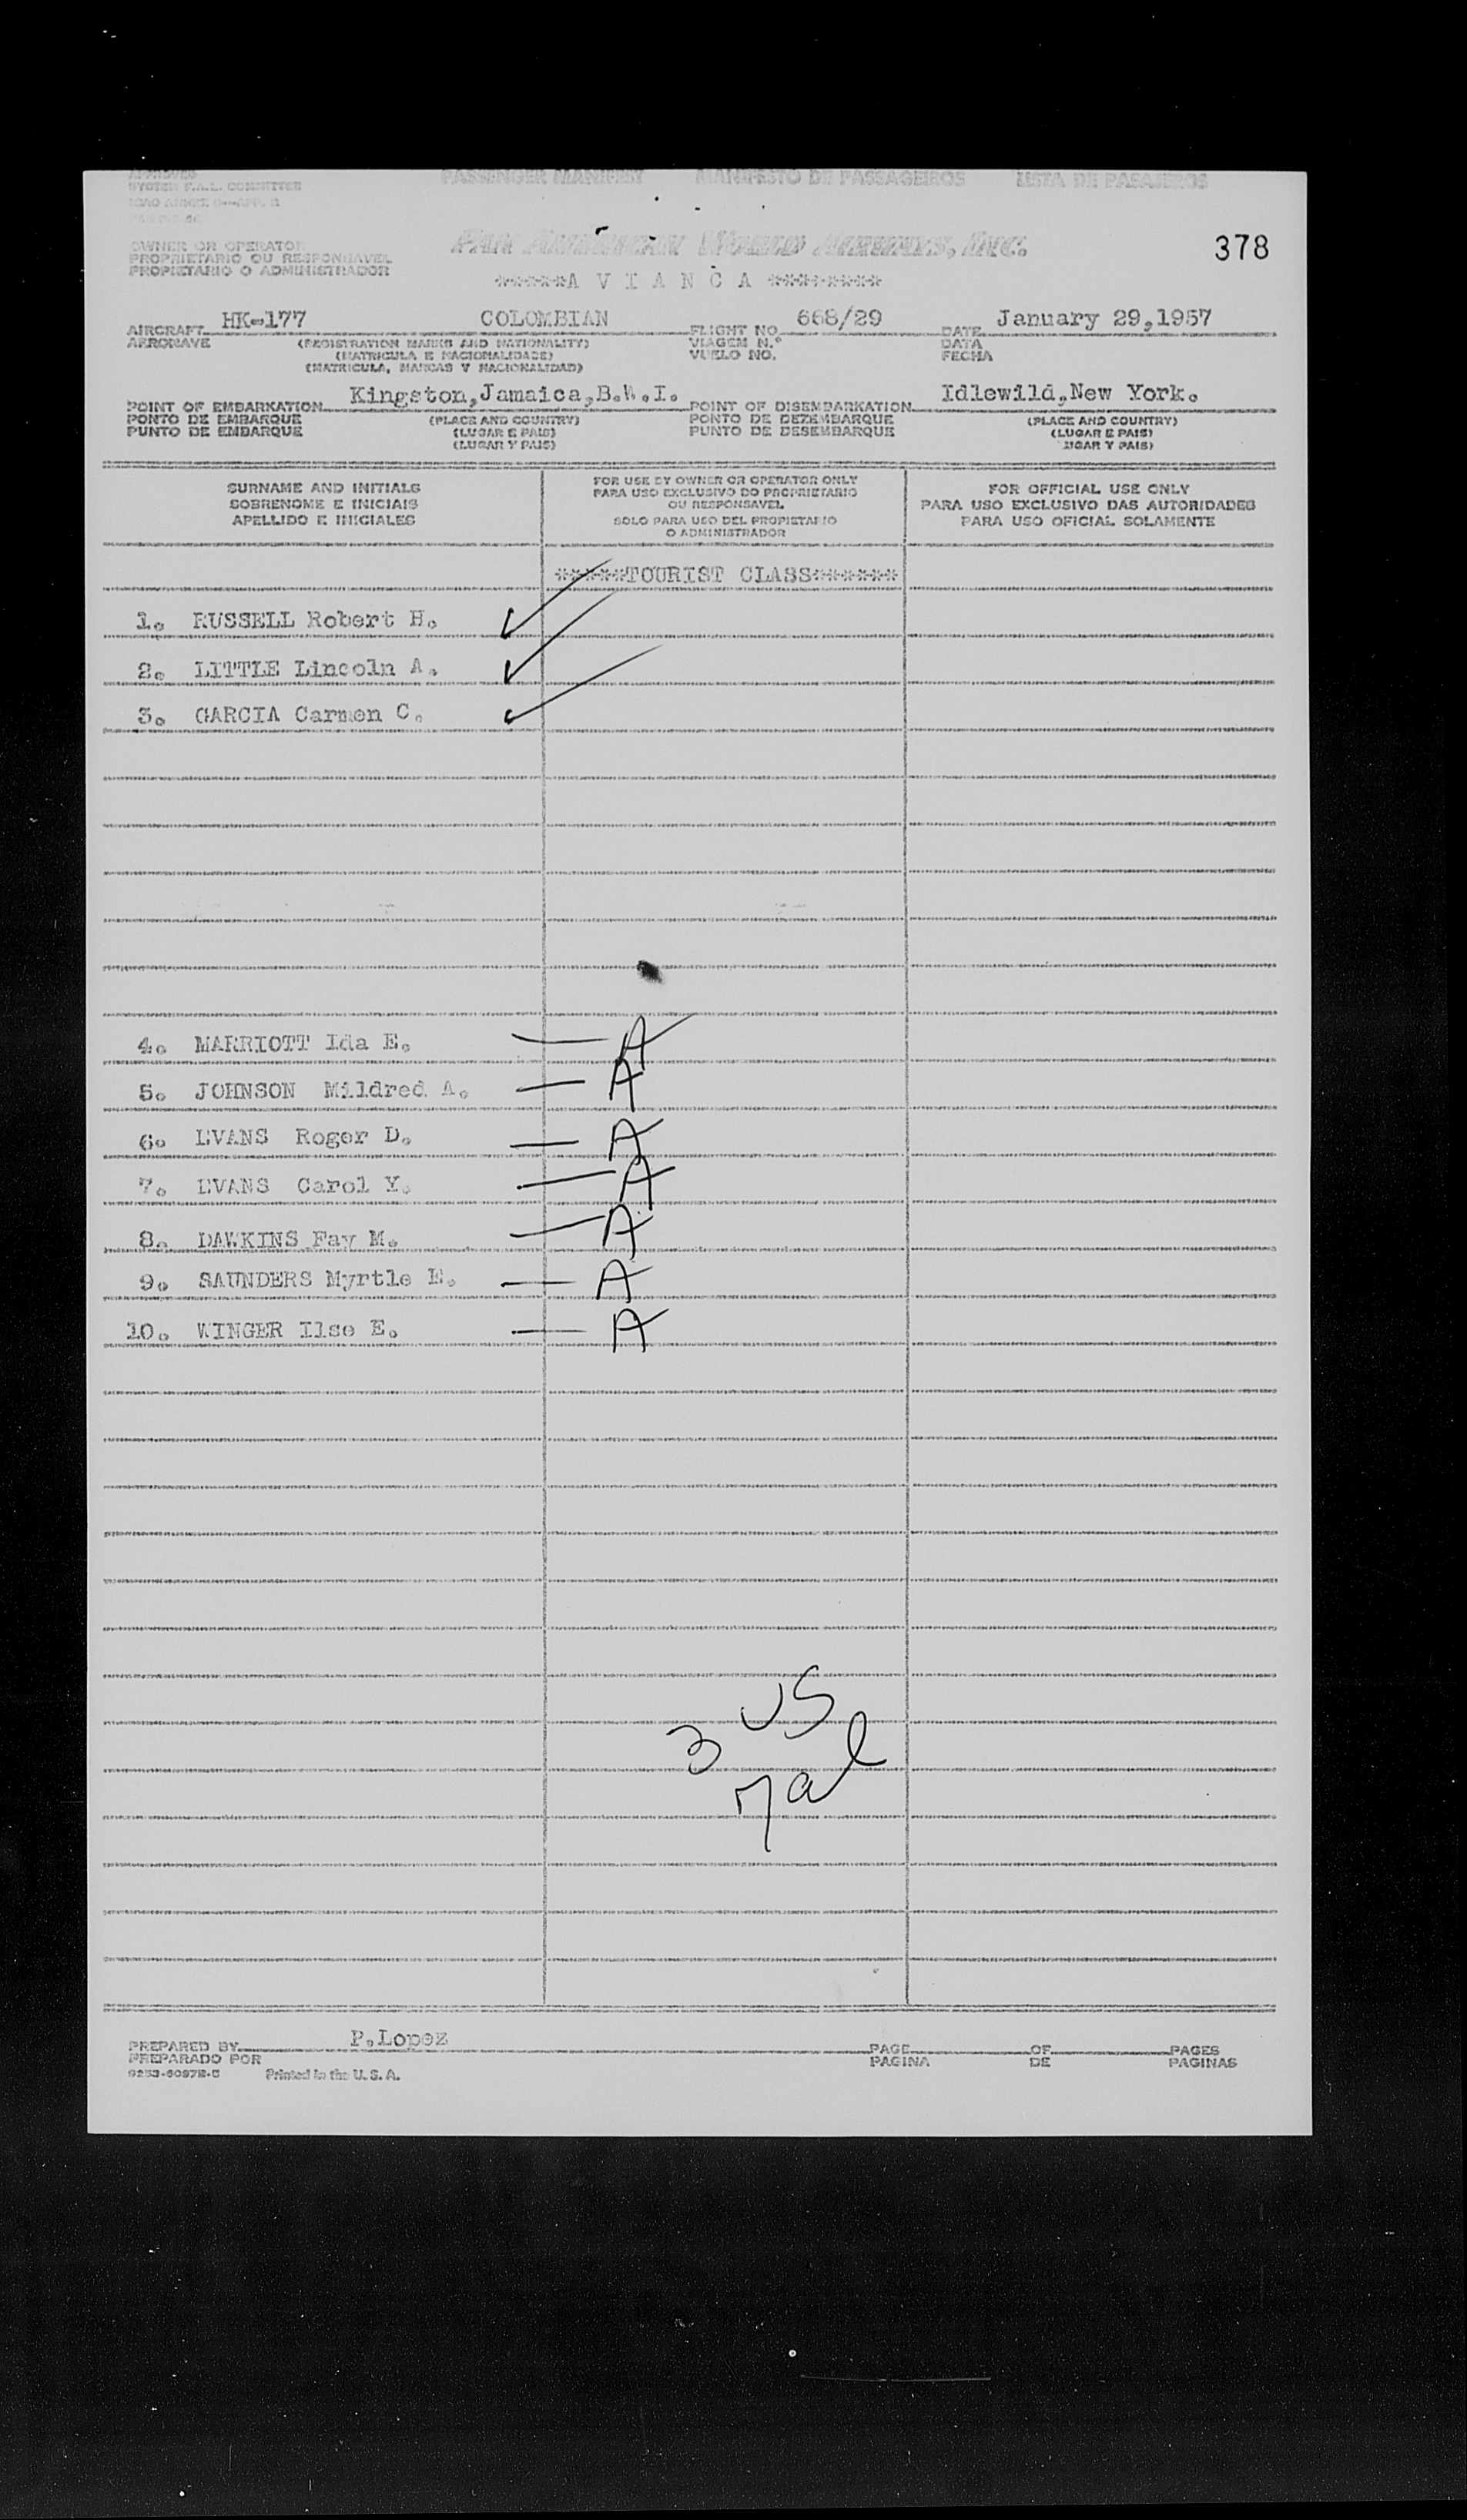 APPROVED
SYSTEM F.A.L. COMMITTEE
PASSENGER MANIFEST MANIFESTO DE PASSAGEIROS LISTA DE PASAJEROS
378
OWNER OR OPERATOR
PROPRIETARIO OU RESPONSAVEL
PROPIETARIO O ADMINISTRADOR
PAN AMERICAN WORLD AIRWAYS, INC.
*****A V I A N C A ********
AIRCRAFT HK-177 COLOMBIAN FLIGHT NO. 668/29 DATE January 29,1957
AERONAVE (REGISTRATION MARKS AND NATIONALITY) VIAGEM N.º DATA
(MATRICULA E NACIONALIDADE) VUELO NO. FECHA
(MATRICULA, MARCAS Y NACIONALIDAD)
POINT OF EMBARKATION Kingston,Jamaica,B.W.I. POINT OF DISEMBARKATION Idlewild,New York.
PONTO DE EMBARQUE (PLACE AND COUNTRY) PONTO DE DEZEMBARQUE (PLACE AND COUNTRY)
PUNTO DE EMBARQUE (LUGAR E PAIS) PUNTO DE DESEMBARQUE (LUGAR E PAIS)
(LUGAR Y PAIS) UGAR Y PAIS)
SURNAME AND INITIALS
SOBRENOME E INICIAIS
APELLIDO E INICIALES
FOR USE BY OWNER OR OPERATOR ONLY
PARA USO EXCLUSIVO DO PROPRIETARIO
OU RESPONSAVEL
SOLO PARA USO DEL PROPIETARIO
O ADMINISTRADOR
FOR OFFICIAL USE ONLY
PARA USO EXCLUSIVO DAS AUTORIDADES
PARA USO OFICIAL SOLAMENTE
*****TOURIST CLASS******
1. RUSSELL Robert H.
2. LITTLE Lincoln A.
3. GARCIA Carmen C.
4. MARRIOTT Ida E. — A
5. JOHNSON Mildred A. — A
6. EVANS Roger D. — A
7. EVANS Carol Y. — A
8. DAWKINS Fay M. — A
9. SAUNDERS Myrtle E. — A
10. WINGER Ilse E. — A
3 US
7 al
PREPARED BY P.Lopez PAGE OF PAGES
PREPARADO POR PAGINA DE PAGINAS
Printed in the U.S.A.